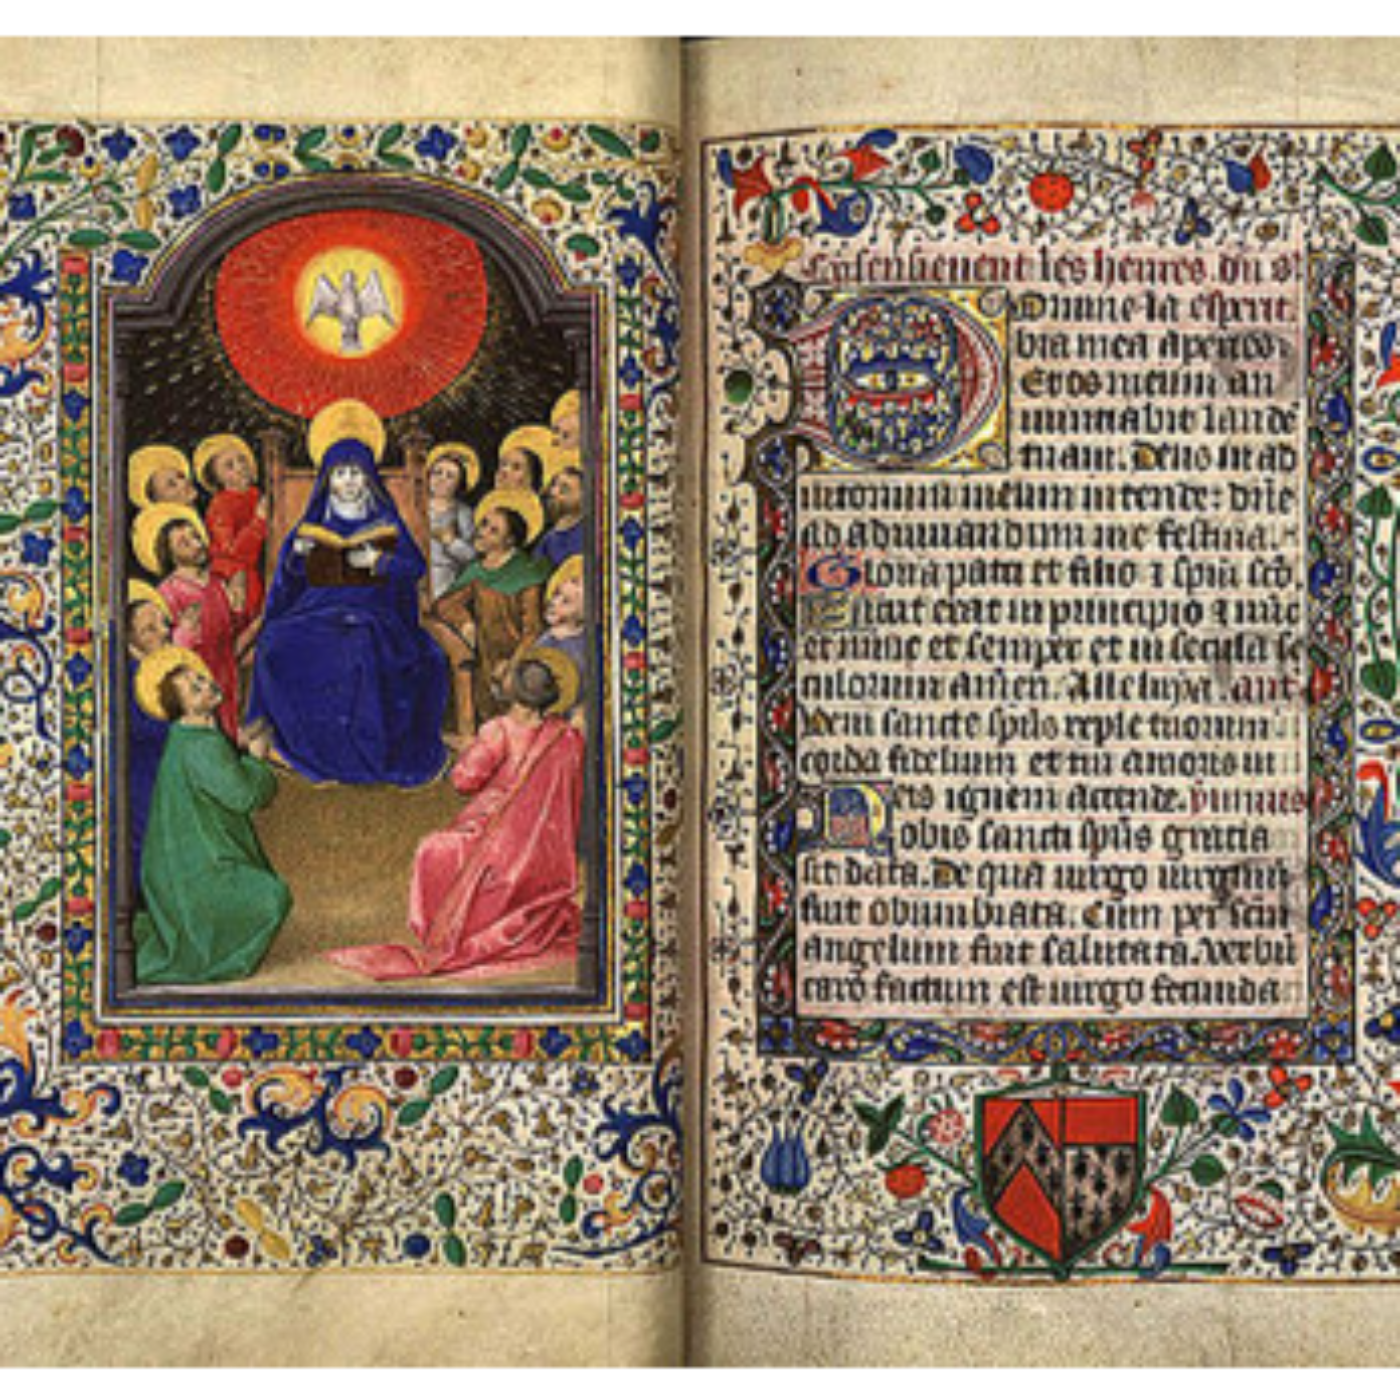 Cy ensiuenent les heures du st
Domine la esperit
bia mea aperies
Et os meum an
nunciabit laude
tuam. Deus in ad
iutorium meum intende: dne
ad adiuuandum me festina.
Gloria patri et filio ⁊ spiū scō.
Sicut erat in principio ⁊ nūc
et nunc et semper et in secula se
culorum amen. Alleluya. ant
Veni sancte spūs reple tuorum
corda fidelium et tui amoris in
eis ignem accende. ymnus
Nobis sancti spūs gracia
sit data. De qua uirgo uirginū
fuit obumbrata. Cum per scūm
angelum fuit salutata. Verbū
caro factum est uirgo fecunda